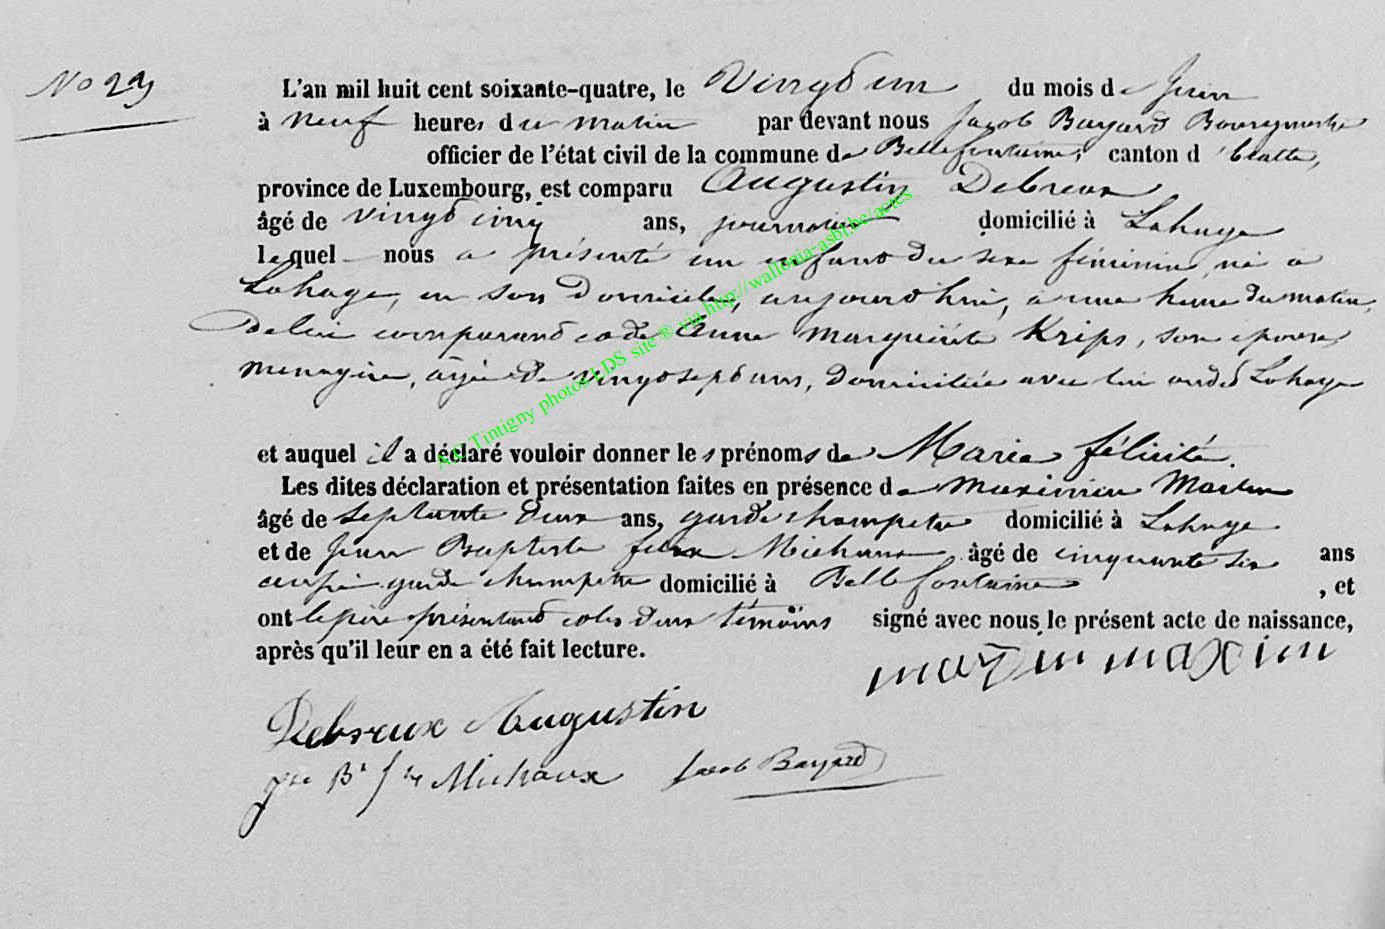 No 23
L'an mil huit cent soixante-quatre, le Vingt un du mois de Juin
à neuf heures du matin par devant nous Jacob Bayard Bourgmestre
officier de l'état civil de la commune de Bellefontaine, canton d'Etalle,
province de Luxembourg, est comparu Augustin Debreux
âgé de vingt cinq ans, journalier domicilié à Lahage
lequel nous a présenté un enfant du sexe féminin, né à
Lahage, en son domicile, aujourd'hui, à une heure du matin,
de lui comparant et de Anne Marguerite Krips, son épouse,
menagère, agée de vingt sept ans, domiciliée avec lui audit Lahage
et auquel il a déclaré vouloir donner les prénoms de Marie félicité.
Les dites déclaration et présentation faites en présence de Maximien Martin
âgé de septante deux ans, garde champetre domicilié à Lahage
et de Jean Baptiste Michaux âgé de cinquante six ans
garde champetre domicilié à Bellefontaine , et
ont le père présentant et les deux témoins signé avec nous le présent acte de naissance,
après qu'il leur en a été fait lecture.
martin maximin
Debreux Augustin
Jn Bt Michaux Jacob Bayard
AG Tintigny photos LDS site ® via http://wallonia-asbl.be/actes